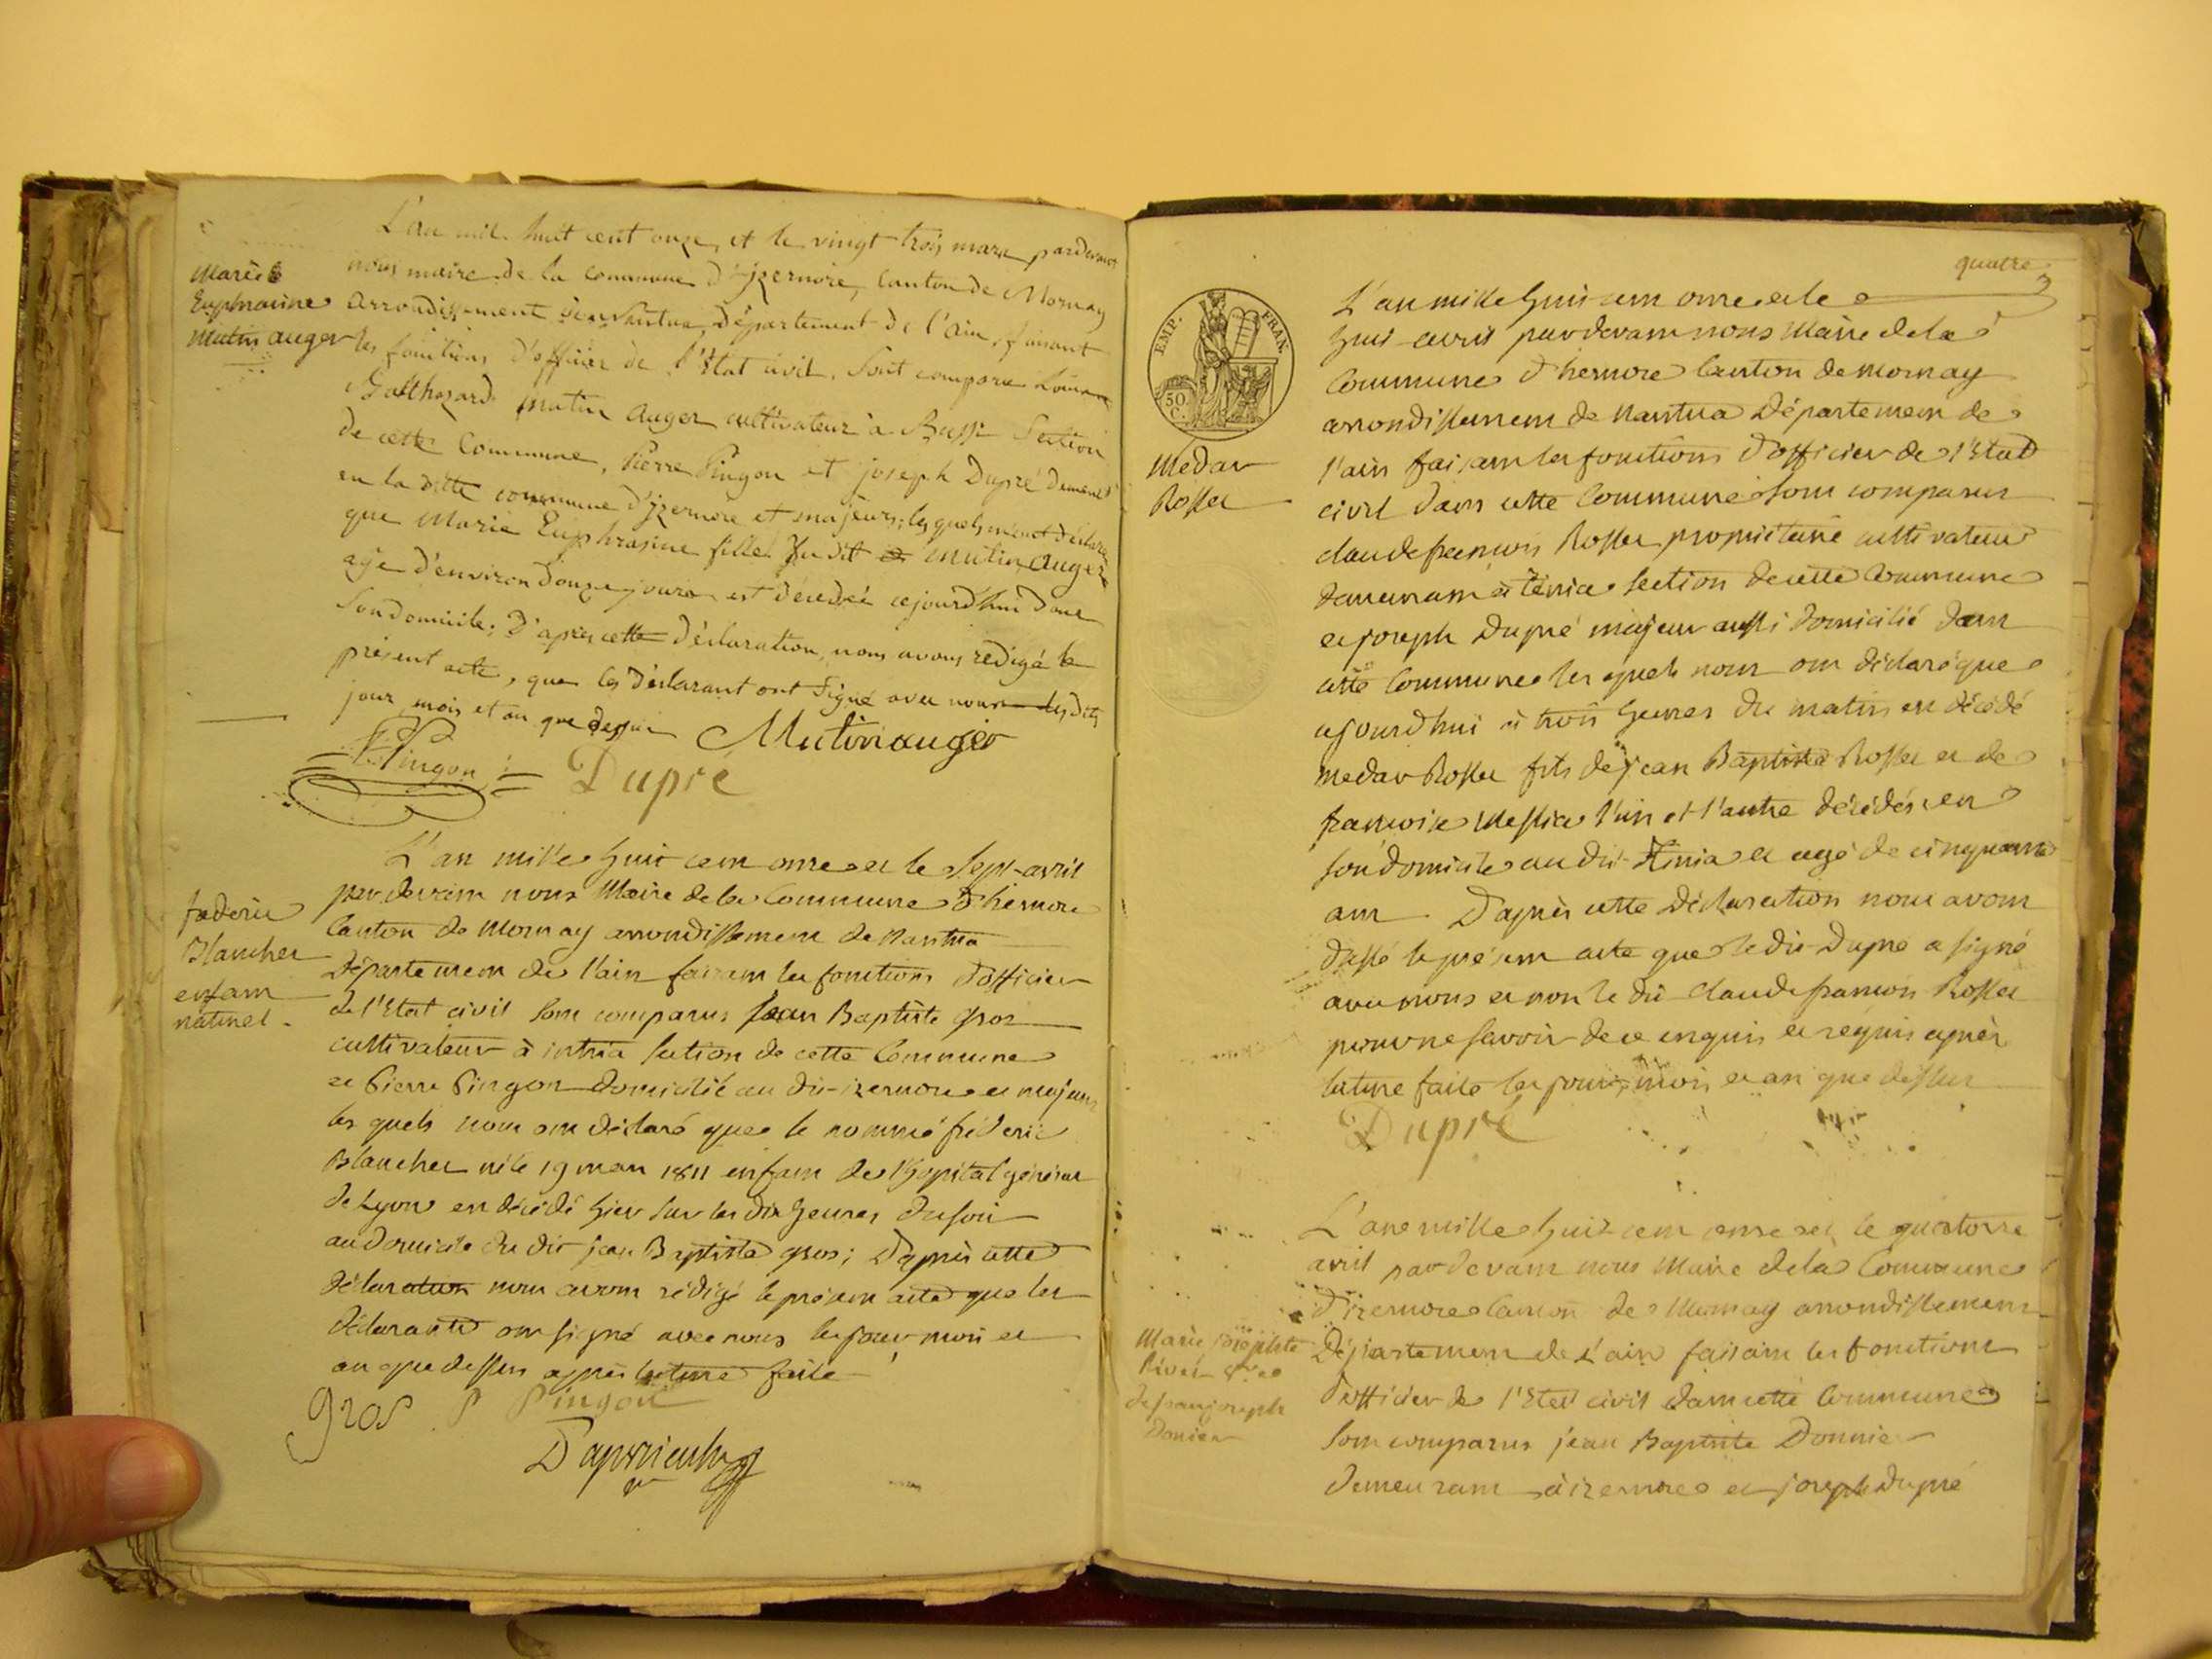 L'an mil huit cent onze, et le vingt trois mars pardevant
nous maire de la commune d'jzernore, Canton de Mornay
arrondissement de Nantua, département de l'ain, faisant
les fonctions d'officier de l'Etat civil. Sont comparu
Balthazard mutin auger cultivateur à Bussi Section
de cette Commune, Pierre Pingon et joseph Dupré
en la ditte commune d'jzernore et majeurs; les quels m'ont déclaré
que Marie Euphrasine fille du dit mutin auger
age d'environ douze jours est décédée cejourd'hui dans
son domicile; D'après cette déclaration, nous avons redigé le
présent acte, que les déclarant ont signé avec nous les dits
jour mois et an que dessus
Marie
Euphrasine
mutin auger
Pingon
Mutin auger
Dupré
L'an mille huit cent onze et le sept avril
par devant nous Maire de la Commune d'hernore
Canton de Mornay arrondissement de Nantua
Département de l'ain faisant les fonctions d'officier
de l'Etat civil sont comparus jean Baptiste gros
cultivateur à intria section de cette Commune
et Pierre Pingon domicilié au dit izernore et majeurs
les quels nous ont déclaré que le nommé fréderic
Blanchet né le 19 mars 1811 enfant de l'hopital général
de Lyon est décédé hier sur les dix heures du soir
au domicile du dit jean Baptiste gros; D'après cette
déclaration nous avons rédigé le présent acte que les
déclarants ont signé avec nous les jour, mois et
an que dessus après lecture faite
fréderic
Blanchet
enfant
naturel.
gros P Pingon
quatre
EMP. FRAN.
50 C.
Medar
Rosset
L'an mille huit cent onze et le
huit avril par devant nous Maire de la
Commune d'hernore Canton de mornay
arrondissement de Nantua Département de
l'ain faisant les fonctions d'officier de l'Etat
civil dans cette Commune sont comparus
claude françois Rosset propriétaire cultivateur
demeurant à section de cette Commune
et joseph Dupré majeur aussi domicilié dans
cette Commune les quels nous ont déclaré que
cejourd'hui à trois heures du matin est décédé
medar Rosset fils de jean Baptiste Rosset et de
françoise l'un et l'autre décédés en
son domicile au dit et agé de cinquante
ans D'après cette Déclaration nous avons
dressé le présent acte que le dit Dupré a signé
avec nous et non le dit claude françois Rosset
pour ne savoir de ce enquis et réquis après
lecture faite les jour, mois et an que dessus
Dupré
L'an mille huit cent onze et le quatorze
avril par devant nous Maire de la Commune
d'izernore Canton de Mornay arrondissement
Département de L'ain faisant les fonctions
d'officier de l'Etat civil dans cette Commune
sont comparus jean Baptiste Donnier
demeurant à izernore et joseph Dupré
Marie josephte
de jean joseph
Donier